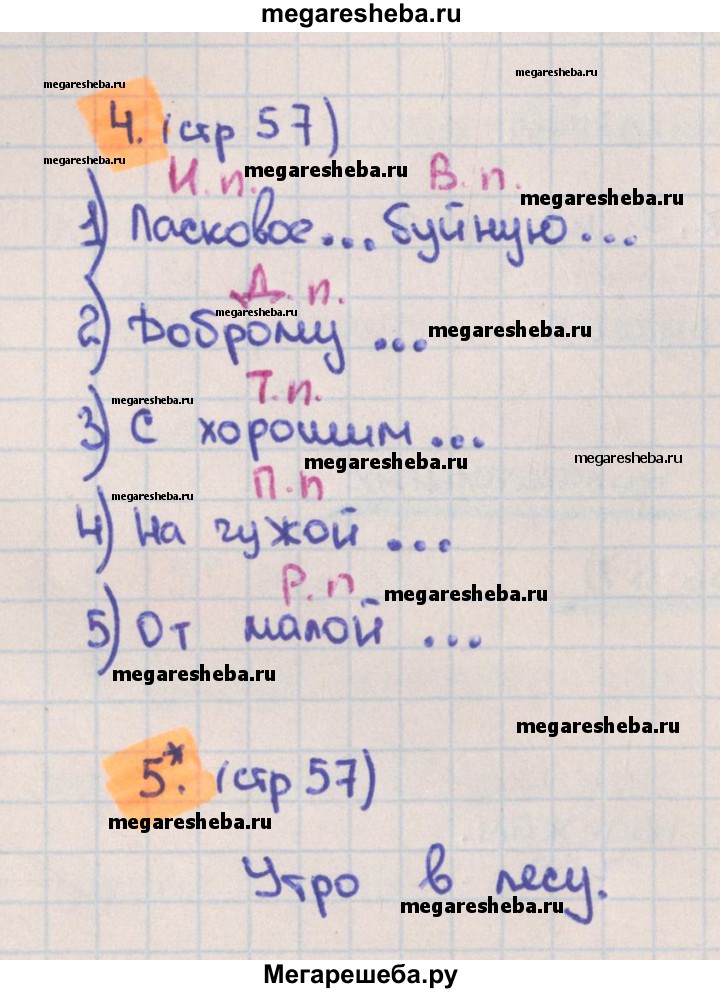 megaresheba.ru
megaresheba.ru
megaresheba.ru
4. (стр 57)
megaresheba.ru
megaresheba.ru
И. п. В. п.
megaresheba.ru
1) Ласковое... буйную...
Д. п.
megaresheba.ru
2) Доброму ...
megaresheba.ru
Т. п.
megaresheba.ru
3) С хорошим ...
megaresheba.ru
megaresheba.ru
П. п
megaresheba.ru
4) На чужой ...
Р. п.
megaresheba.ru
5) От малой ...
megaresheba.ru
megaresheba.ru
5*. (стр 57)
megaresheba.ru
Утро в лесу.
megaresheba.ru
Мегарешеба.ру